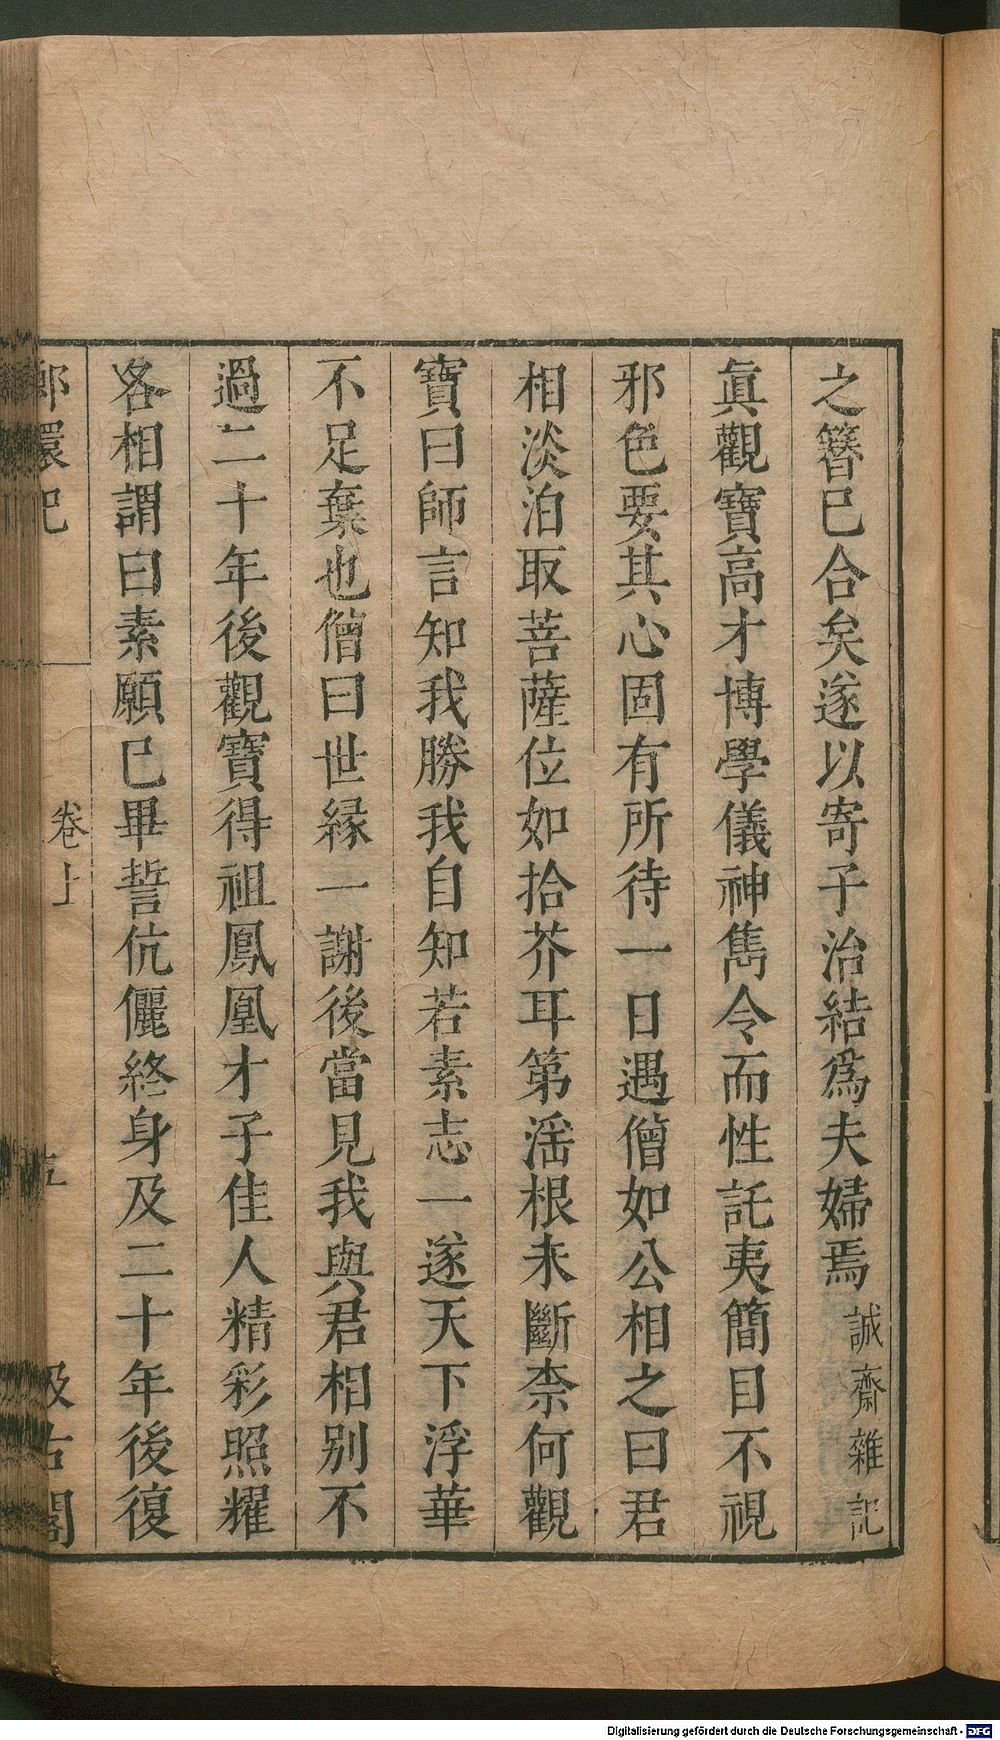 之簪巳合矣遂以寄子治結爲夫婦焉誠齋雜記
眞觀寶高才博學儀神雋令而性託夷簡目不視
邪色要其心固有所待一日遇僧如公相之曰君
相淡泊取菩薩位如拾芥耳第滛根未斷柰何觀
寶曰師言知我勝我自知若素志一遂天下浮華
不足棄也僧曰世緣一謝後當見我與君相別不
過二十年後觀寶得祖鳳凰才子佳人精彩照耀
各相謂曰素願巳畢誓伉儷終身及二十年後復
卷上
Digitalisierung gefördert durch die Deutsche Forschungsgemeinschaft - DFG